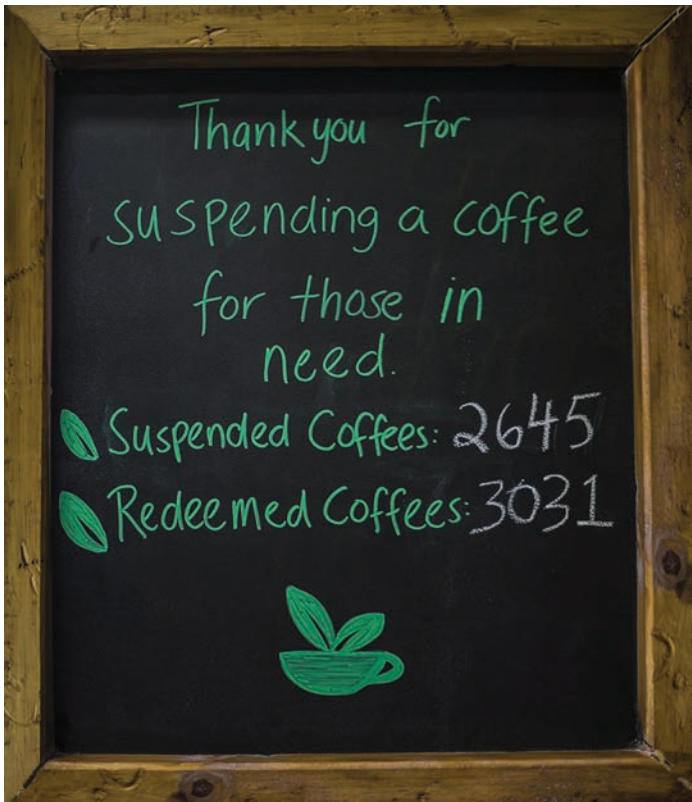 Thank you for
suspending a coffee
for those in
need.
Suspended Coffees: 2645
Redeemed Coffees: 3031